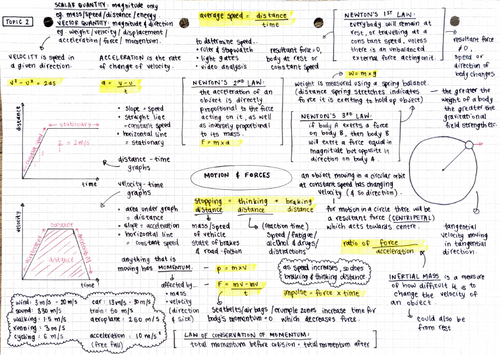 TOPIC 2
SCALAR QUANTITY: magnitude only
eg. mass/speed/distance/energy
VECTOR QUANTITY: magnitude & direction
eg. weight/velocity/displacement/
acceleration/force/momentum.
VELOCITY is speed in
a given direction.
ACCELERATION is the rate
of change of velocity.
average speed = distance
time
to determine speed..
• ruler & stopwatch
• light gates
• video analysis
resultant force = 0,
body at rest or
constant speed
NEWTON'S 1ST LAW:
everybody will remain at
rest, or travelling at a
constant speed, unless
there is an unbalanced
external force acting on it.
resultant
force
≠ 0,
speed or
direction
of body
changes
NEWTON'S 2ND LAW:
the acceleration of
an object is directly
proportional to the force
acting on it, as well
as inversely proportional
to its mass.
F = m x a
W = m x g
weight is measured using a spring balance.
(distance spring stretches indicates
force it is exerting to hold up object)
the greater the
weight of a body
the greater its
gravitational
field strength etc.
NEWTON'S 3RD LAW:
if body A exerts a force
on body B, then body B
will exert a force equal in
magnitude but opposite in
direction on body A.
distance
time
stationary
• slope = speed
• straight line
= constant speed
• horizontal line
= stationary
distance-time
graphs
MOTION & FORCES
velocity-time
graphs
velocity
time
constant
DISTANCE
• area under graph
= distance
• slope = acceleration
• horizontal line
= constant speed
stopping = thinking + braking
distance distance distance
mass/speed
of vehicle
state of brakes
& road-friction
(reaction time)
Speed/fatigue/
alcohol & drugs/
distractions
as speed increases, so does
breaking & thinking distance
an object moving in a circular orbit
at constant speed has changing
velocity (& so direction).
for motion in a circle there will be
a resultant force (CENTRIPETAL)
which acts towards centre.
tangential
velocity moving
in tangential
direction.
ratio of force
acceleration
INERTIAL MASS is a measure
of how difficult it is to
change the velocity
of an object
could also be
from rest
anything that is
moving has MOMENTUM.
p = m x v
F = mv - mu
t
impulse = force x time
affected by..
• mass
• velocity
(direction
& size)
seatbelts/airbags/crumple zones increase time for
body's momentum = 0 which decreases force.
LAW OF CONSERVATION OF MOMENTUM:
total momentum before collision = total momentum after
wind: 5 m/s - 20 m/s
sound: 330 m/s
walking: 1.5 m/s
running: 3 m/s
cycling: 6 m/s
acceleration: 10 m/s²
(free fall)